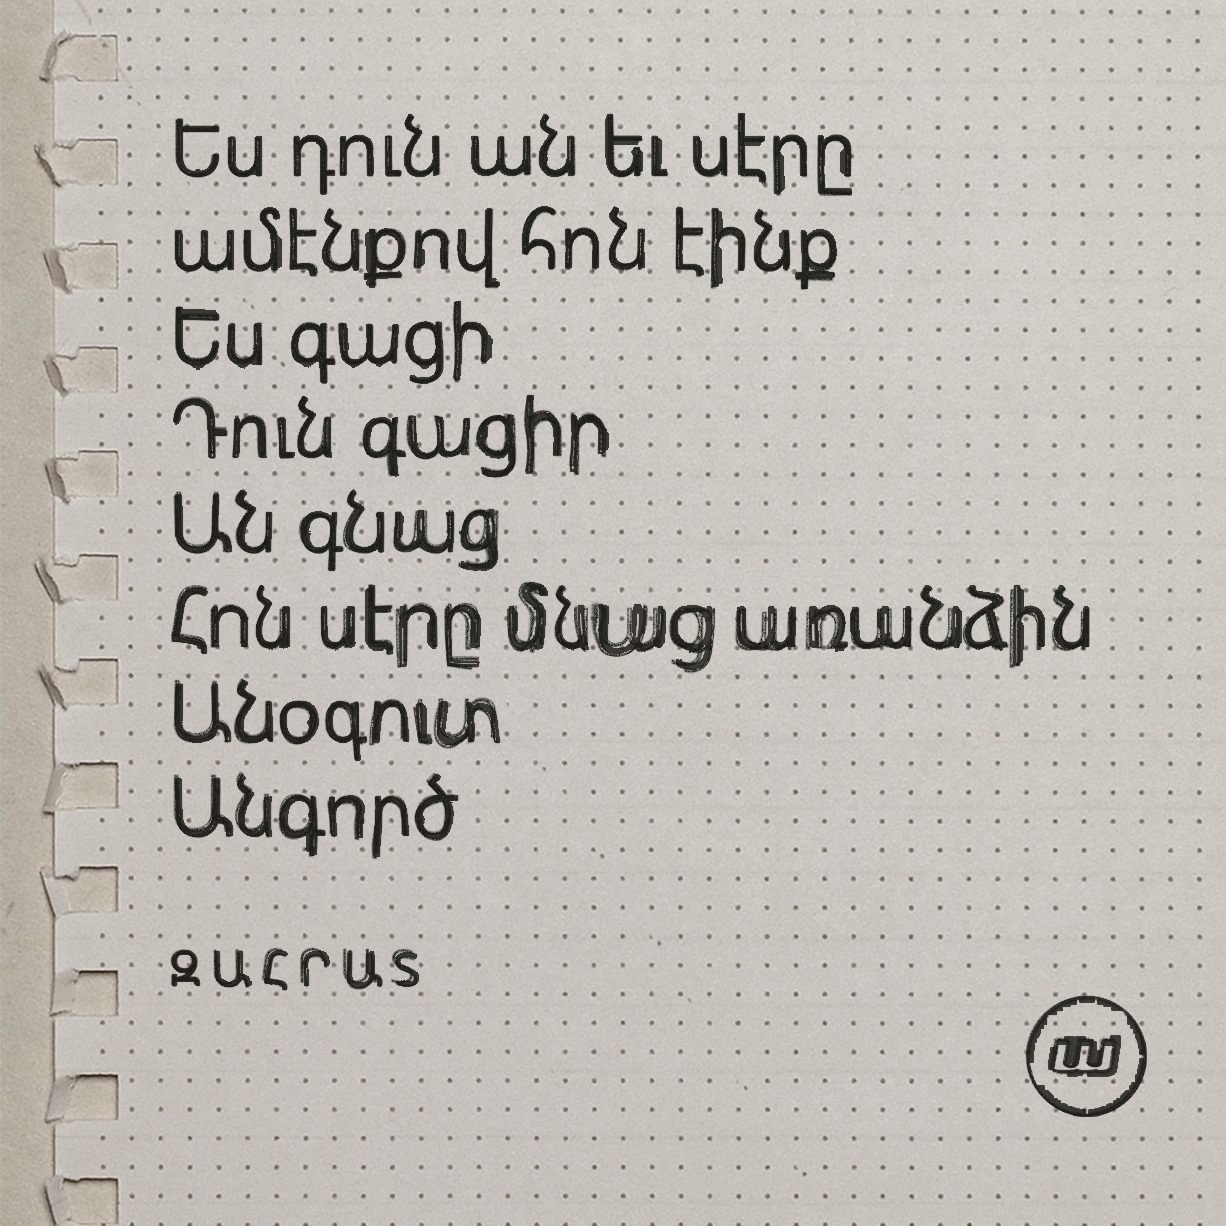 Ես դուն ան եւ սէրը
ամէնքով հոն էինք
Ես գացի
Դուն գացիր
Ան գնաց
Հոն սէրը մնաց առանձին
Անօգուտ
Անգործ
ԶԱՀՐԱՏ